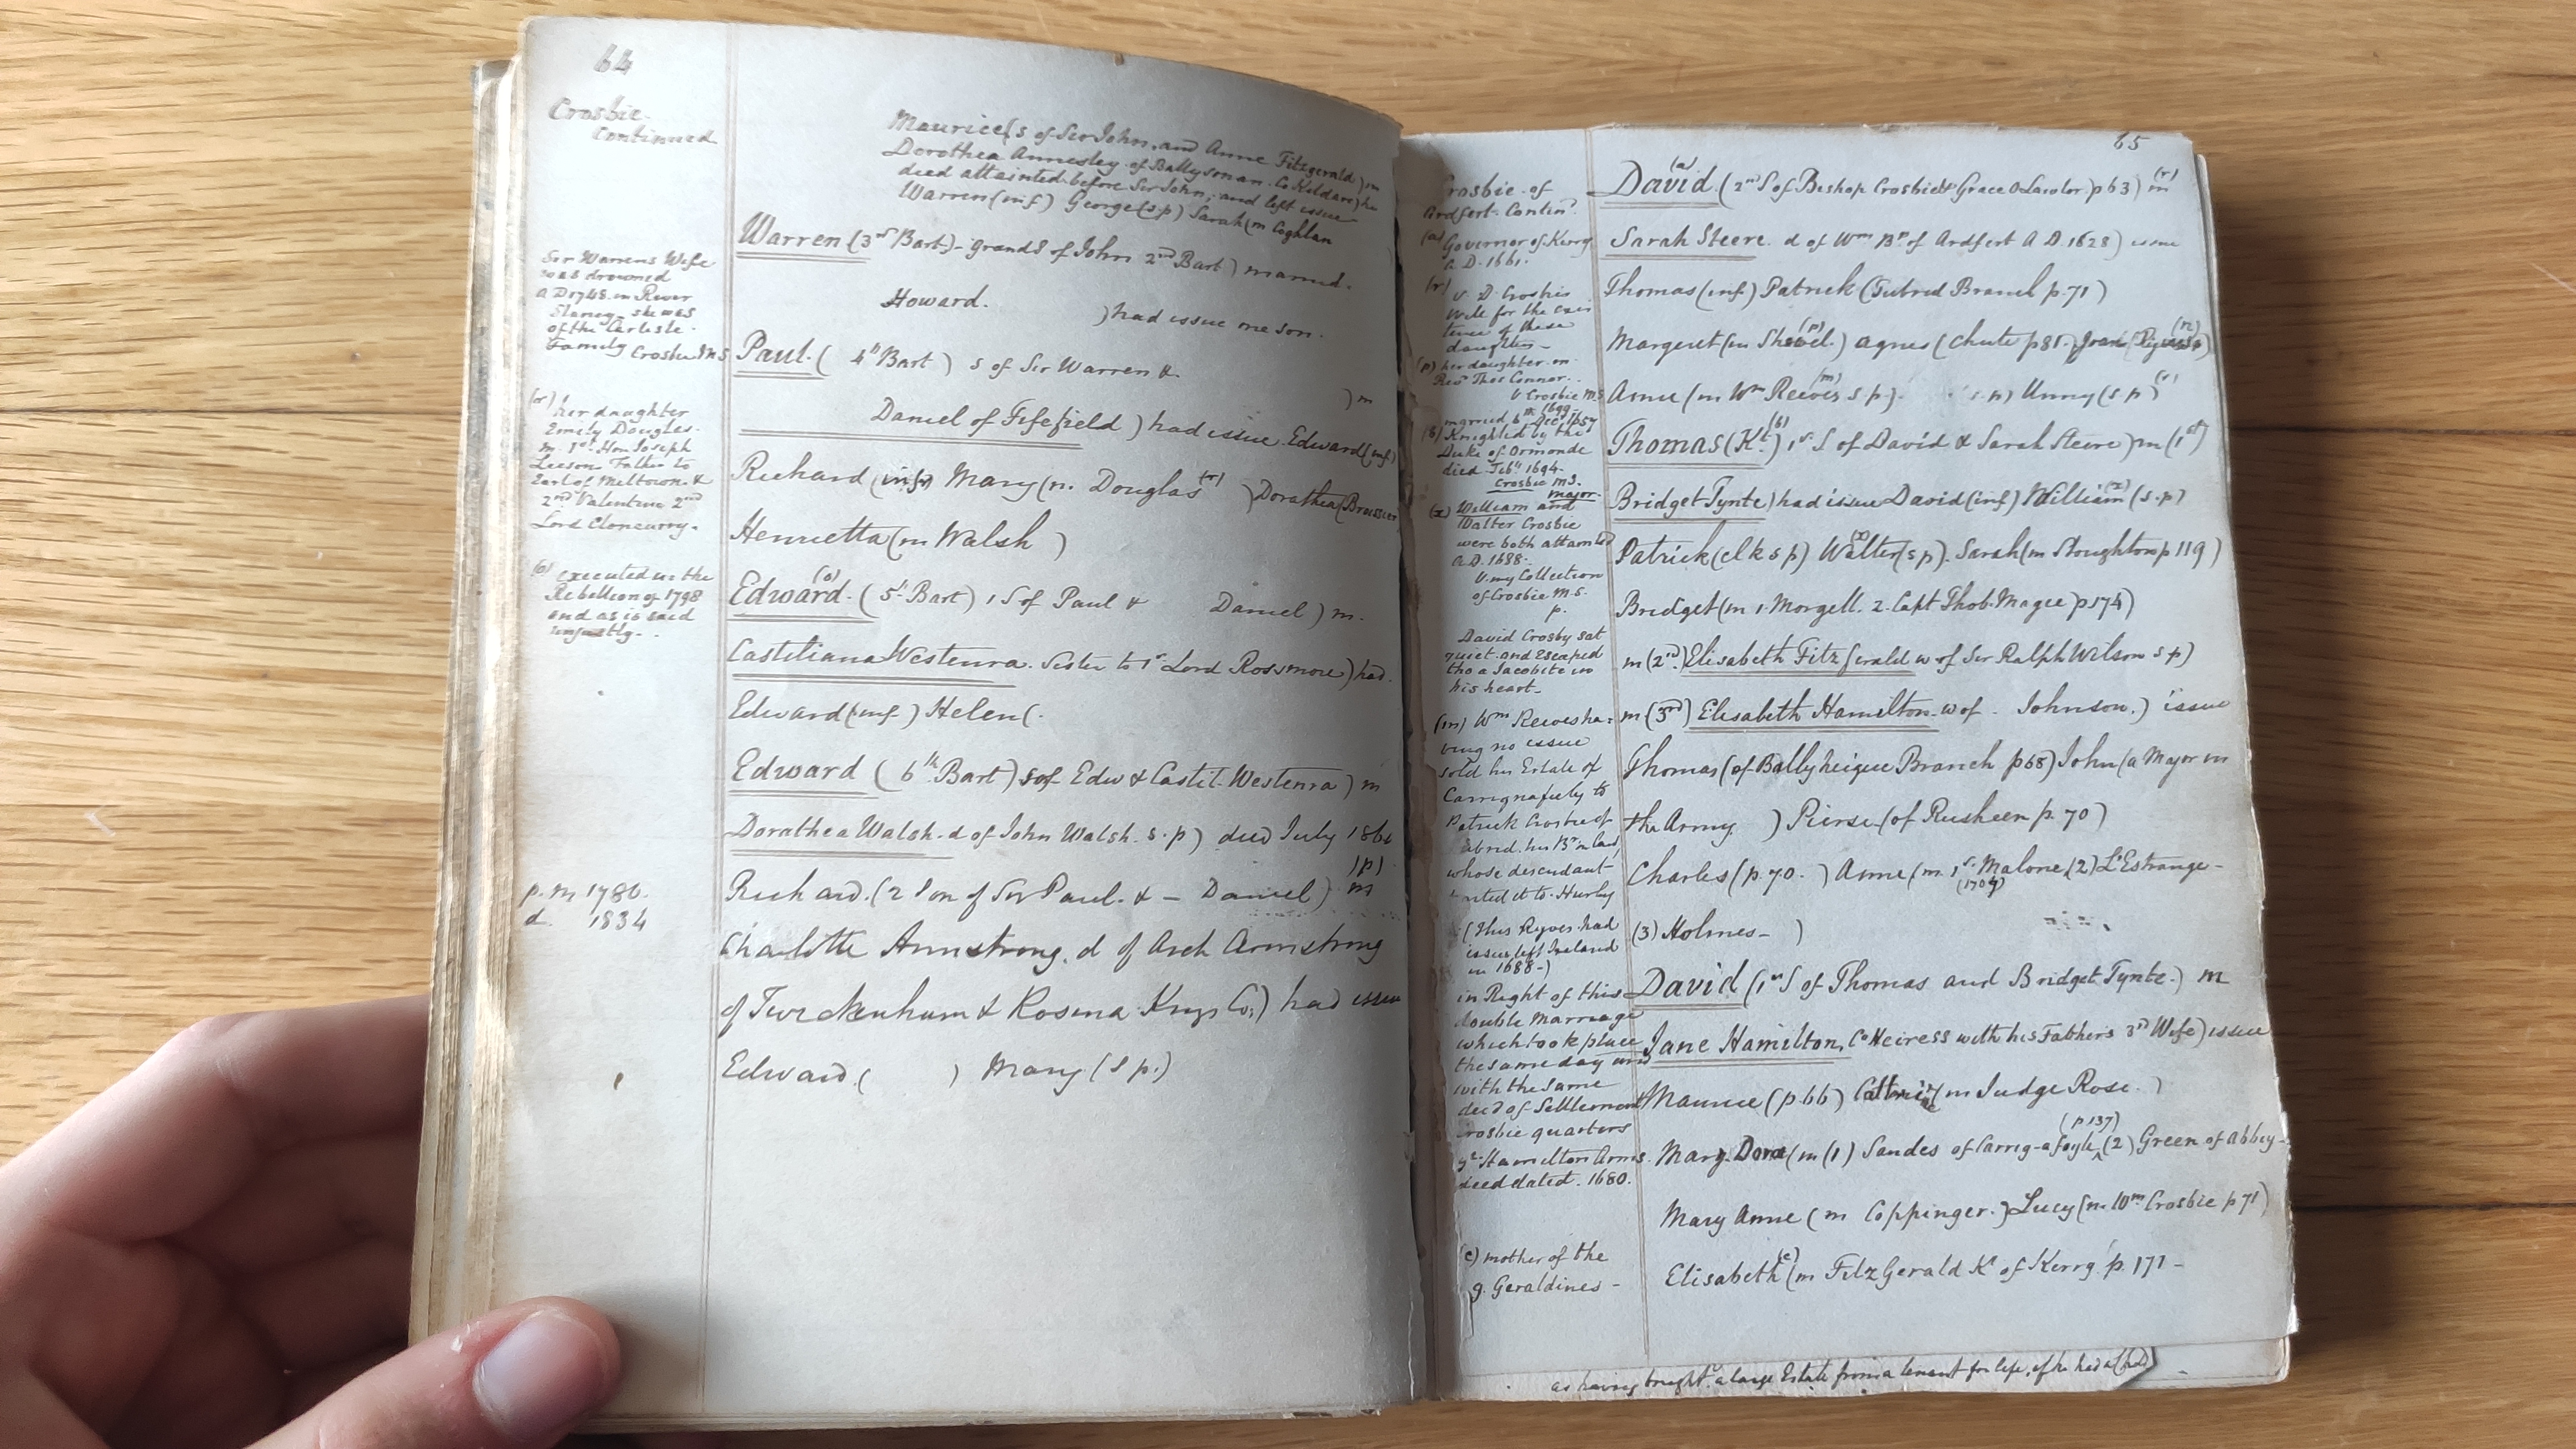 64
Crosbie
Continued
Maurice (s of Sir John, and Anne Fitzgerald) m
Dorothea Annesley of Ballysonan Co Kildare) he
died attainted before Sir John, and left issue
Warren (inf) George (s p) Sarah (m Coghlan
Warren (3rd Bart) grand S of John 2nd Bart) married
Howard. ) had issue one son.
Paul. ( 4th Bart ) s of Sir Warren &
) m
Daniel of Fifefield ) had issue Edward (inf)
Richard (infr) Mary (m. Douglas (r) ) Dorothea (
Henrietta (m Walsh )
Edward. (o) ( 5t Bart) 1 S of Paul & Daniel ) m.
Castiliana Westenra. Sister to 1st Lord Rossmore) had.
Edward (inf.) Helen (.
Edward ( 6th Bart) s of Edw & Castil. Westenra ) m
Dorathea Walsh. d of John Walsh. s. p) died July
(p)
Richard. (2 Son of Sir Paul. & - Daniel) m
Charlotte Armstrong. d of Arch Armstrong
of & Rosena Kings Co.) had issue
Edward. ( ) Mary (s p.)
Sir Warrens Wife
was drowned
A D 1748. in River
Slaney - she was
of the Carlisle.
Family Crosbie M S
(r) her daughter
Emily Douglas.
m. 1st Hon Joseph
Leeson Father to
Earl of Meltown. &
2nd Valentine 2nd
Lord Cloncurry.
(o) executed in the
Rebellion of 1798
and as is said
unjustly.
p. m 1786.
d. 1834
65
Crosbie of
Ardfert. Contind.
(a) Governor of Kerry
A. D. 1661.
(r) v. D. Crosbies
Will for the exis
tence of these
daughters -
(p) her daughter m
Revd Thos Connor.
V Crosbie M S
married 6th Decr 1657
1699
(s) Knighted by the
Duke of Ormonde
died Feby 1694.
Crosbie M S.
major.
(x) William and
Walter Crosbie
were both attainted
A.D. 1688.
V. my Collection
of Crosbie M. S.
p.
David Crosby sat
quiet and Escaped
tho a Jacobite in
his heart -
(m) Wm Reeves ha-
ving no issue
sold his Estate of
to
Patrick Crosbie of
Tubrid. his Br in law,
whose descendant
it to Hurley
(Thus Ryves had
issue left Ireland
in 1688 -)
in Right of this
double marriage
which took place
the same day and
with the same
deed of Settlement
Crosbie quarters
ye Hamilton Arms.
deed dated. 1680.
(e) mother of the
g. Geraldines -
David. (a) (2nd S of Bishop Crosbie & Grace O Lawlor p 63) m (r)
Sarah Steere. d of Wm Bp of Ardfert A D. 1628) issue
Thomas (inf) Patrick (Tubrid Branch p. 71)
Margeret (m (p)) Agnes (Chute p 81.) Joan ( (n))
Anne (m Wm Reeves (m) s p). (s. p) Unny (s p)
Thomas (Kt.) (s) 1st S of David & Sarah Steere) m (1st)
Bridget Tynte) had issue David (inf) William (x) (s. p)
Patrick (clk s p) Walter (x) (s p). Sarah (m Stoughton p 119)
Bridget (m 1. Morgell. 2. Capt Thos. Magee) p 174)
m (2nd.) Elisabeth Fitz Gerald w of Sir Ralph Wilson s p)
m (3rd) Elisabeth Hamilton w of Johnson.) issue
Thomas (of Ballyheigue Branch p 68) John (a Major in
the Army ) Pierse (of Rusheen p. 70)
Charles (p. 70. ) Anne (m. 1st Malone, (2) L'Estrange -
(1704)
(3) Holmes - )
David (1st S of Thomas and Bridget Tynte.) m
Jane Hamilton, CoHeiress with his Fathers 3rd Wife) issue
Maurice (p 66) (m Judge Rose. )
(p 137)
Mary. Dora (m (1) Sandes of Carrig-a foyle ^ (2) Green of Abbey-
Mary Anne ( m Coppinger. ) Lucy (m. Wm Crosbie p 71)
Elisabeth (e) (m FitzGerald Kt of Kerry p. 171 -
as having bought a large Estate from a tenant for life, if he had